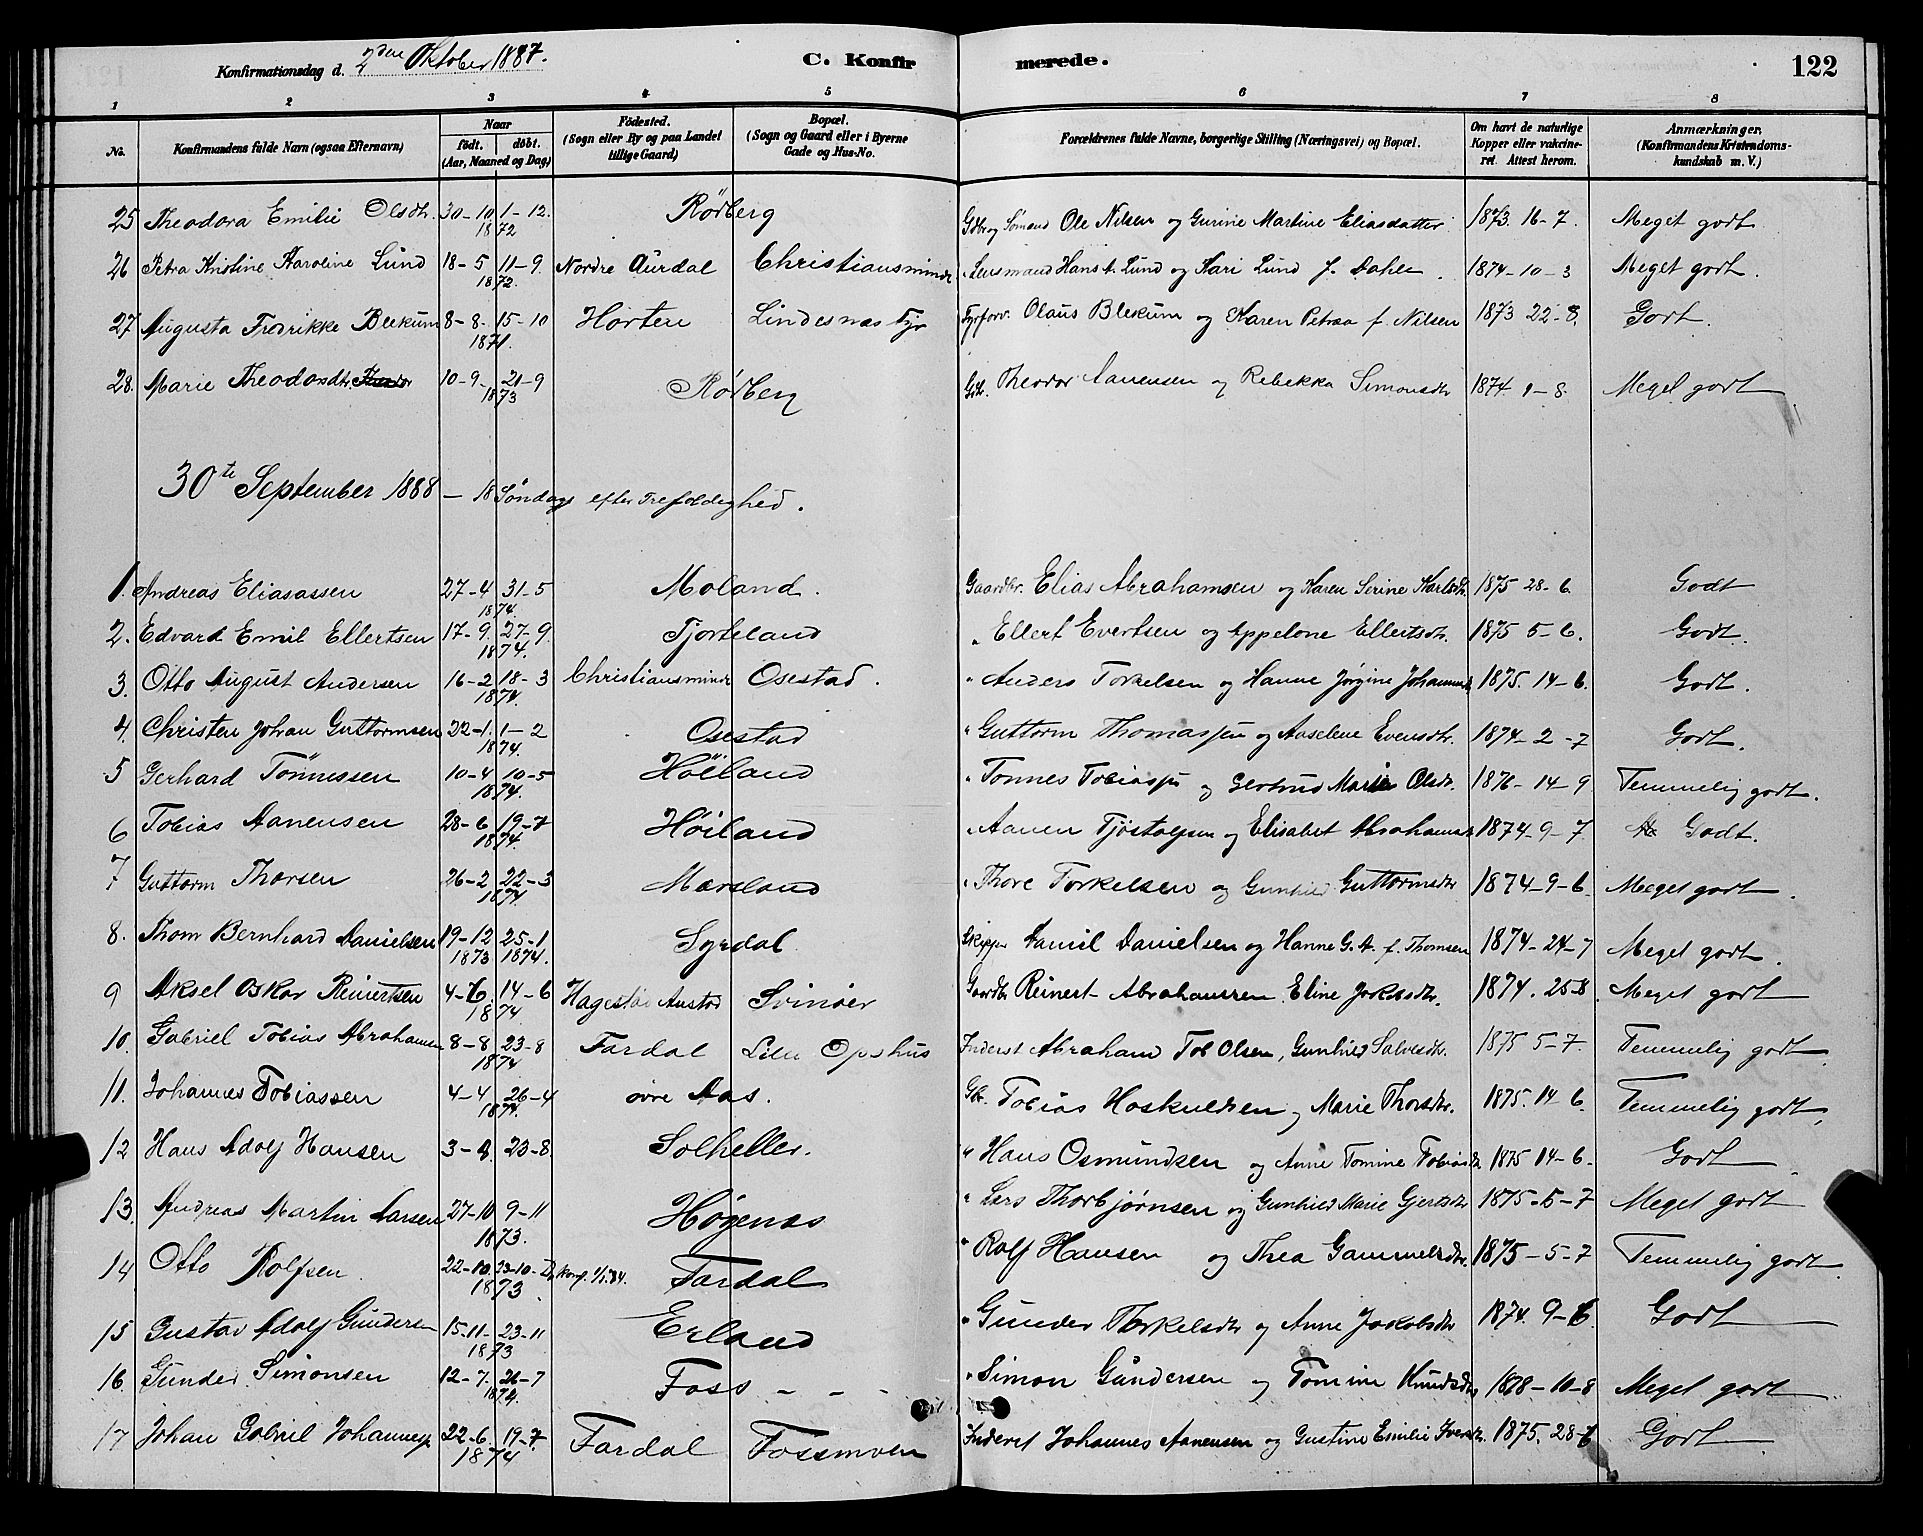 Konfirmationsdag d. 2den Oktober 1887. C. Konfir merede. 122
1 2 3 4 5 6 7 8
No. Konfirmandens fulde Navn (ogsaa Efternavn) Naar födt. döbt. (Aar, Maaned og Dag) Födested. (Sogn eller By og paa Landet tillige Gaard) Bopæl. (Sogn og Gaard eller i Byerne Gade og Hus-No. Forældrenes fulde Navne, borgerlige Stilling (Næringsvei) og Bopæl. Om havt de naturlige Kopper eller vakcineret. Attest herom. Anmærkninger. (Konfirmandens Kristendomskundskab m. V.)
25 Theodora Emilie Olsdtr. 30-10 1-12. 1872 Rödberg Gdbr og Sömand Ole Nilsen og Gurine Martine Eliasdatter 1873. 16-7. Meget godt
26 Petra Kristine Karoline Lund 18-5 11-9. 1872. Nordre Aurdal Christiansminde Lensmand Hans t. Lund og Kari Lund f. Dahle. 1874-10-3 Meget godt.
27 Augusta Fredrikke Blekum 8-8. 15-10 1871. Horten Lindesnæs Fyr Fyrforv. Olaus Blekum og Karen Petrea f. Nilsen 1873 22-8. Godt.
28. Marie Theodorsdtr. 10-9. 21-9 1873 Rödberg Gbr. Theodor Aanensen og Rebekka Simonsdtr 1874. 9-8. Meget godt
30te September 1888 - 18 Söndag efter Trefoldighed.
1. Andreas Eliasassen 27-4 31-5 1874. Moland. Gaardbr. Elias Abrahamsen og Karen Serine Karlsdtr. 1875 28-6. Godt
2. Edvard Emil Ellertsen 17-9. 27-9. 1874. Tjorteland " Ellert Evertsen og Appelone Ellertsdtr. 1875 5-6. Godt.
3. Otto August Andersen 16-2 18-3 1874. Christiansminde Osestad. " Anders Torkelsen og Hanne Jörgine Johannesd 1875. 14-6. Godt.
4. Christen Johan Guttormsen 22-1. 1-2 1874. Osestad " Guttorm Thomassen og Aaselene Evensdtr. 1874-2-7 Godt.
5 Gerhard Tönnessen 10-4 10-5 1874. Höiland " Tönnes Tobiassen og Gertrud Marie Olsdr. 1876-14-9 Temmelig godt.
6 Tobias Aanensen 28-6 19-7 1874. Höiland " Aanen Tjöstolsen og Elisabet Abrahamsd 1874-9-7 Godt.
7. Guttorm Thorsen 26-2 22-3 1874. Marsland " Thore Torkelsen og Gunhild Guttormsdtr 1874-9-6 Meget godt.
8. Thom Bernhard Danielsen 19-12 1873 25-1 1874. Syrdal Skipper Daniel Danielsen og Hanne G. A. f. Thomsen 1874-24-7 Meget godt.
9 Aksel Oskar Reinertsen 4-6. 14-6 1874 Hagestad Austad Svinöer Gaardbr Reinert Abrahamsen. Eline Jakobsdtr. 1874. 25-8. Meget godt
10. Gabriel Tobias Abrahamsen 8-8 23-8 1874 Fardal Lille Opshus Inderst Abraham Tob Olsen, Gunhild Salvesdtr. 1875 5-7. Temmelig godt
11. Johannes Tobiassen 4-4 26-4 1874. övre Aas. Gb. Tobias Hoskuldsen og Marie Thorsdtr. 1875. 14-6. Temmelig godt.
12 Hans Adolf Hansen 3-8. 23-8. Solheller. " Hans Osmundsen og Anne Tomine Tobiasd 1875 14-6. Godt
13. Andreas Martin Larsen 27-10 9-11 1873. Høgenæs " Lars Thorbjørnsen og Gunhild Marie Gjertsdtr 1875-5-7 Meget godt
14 Otto Rolfsen. 22-10. 23-10- 1873. Fardal " Rolf Hansen og Thea Gammelsdtr. 1875-5-7 Temmelig godt.
15 Gustav Adolf Gundersen 15-11- 23-11 1873 Erland " Gunder Thorkelsdtr og Anne Jakobsdtr 1874. 9-6. Godt
16. Gunder Simonsen 12-7. 26-7 1874. Foss - - - " Simon Gundersen og Tomine Knudsdtr 1878-10-8 Meget godt
17 Johan Gabriel Johannesen 22-6. 19-7. 1874 Fardal Fossmoen Inderst Johannes Aanensen og Gustine Emilie Iversdtr. 1875. 28-6 Godt